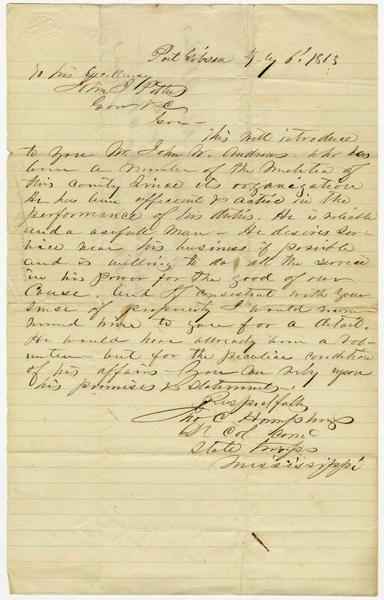 Port Gibson July 6th 1863
To his Excellency
John J Pettus
Gov &C
Gov —
This will introduce
to you Mr. John W. Andrews who has
been a Member of the Militia of
this County Since its organization
He has been efficient & active in the
performance of his duties. He is reliable
and a useful man — He desires ser-
vice near his business if possible
and is willing to do all the service
in his power for the good of our
Cause, and if consistent with your
sense of propriety I would recom-
mend him to you for a detail.
He would have already been a Vol-
unteer but for the peculiar condition
of his affairs You can rely upon
his promises & statements.
Respectfully
Jno C Humphries
Lt Col Com
State troops
Mississippi